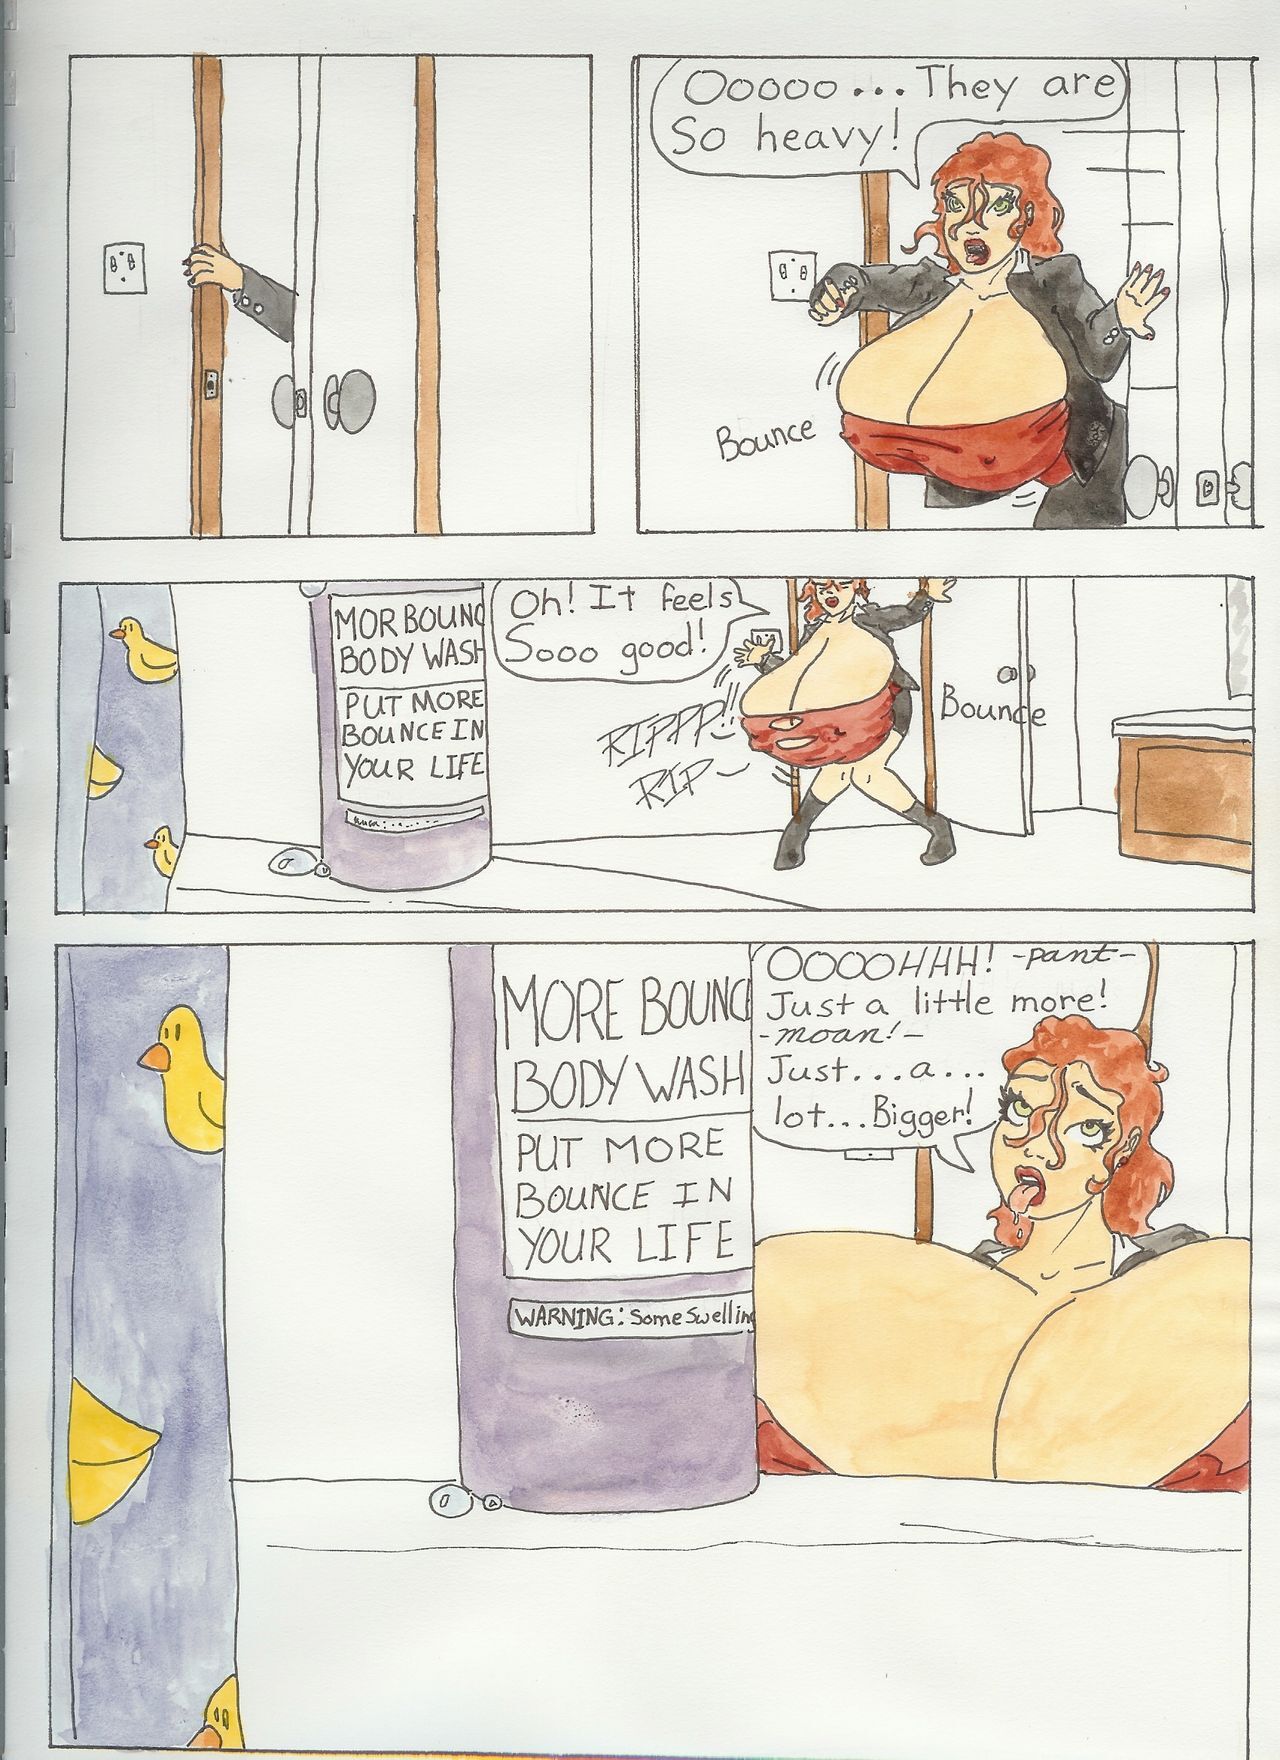 Ooooo... They are
So heavy!
Bounce
MOR BOUNC
BODY WASH
PUT MORE
BOUNCE IN
YOUR LIFE
Oh! It feels
Sooo good!
RIPPP!!
RIP
Bounce
MORE BOUNC
BODY WASH
PUT MORE
BOUNCE IN
YOUR LIFE
WARNING: Some Swelling
OOOOHHH! -pant-
Just a little more!
-moan!-
Just...a...
lot...Bigger!